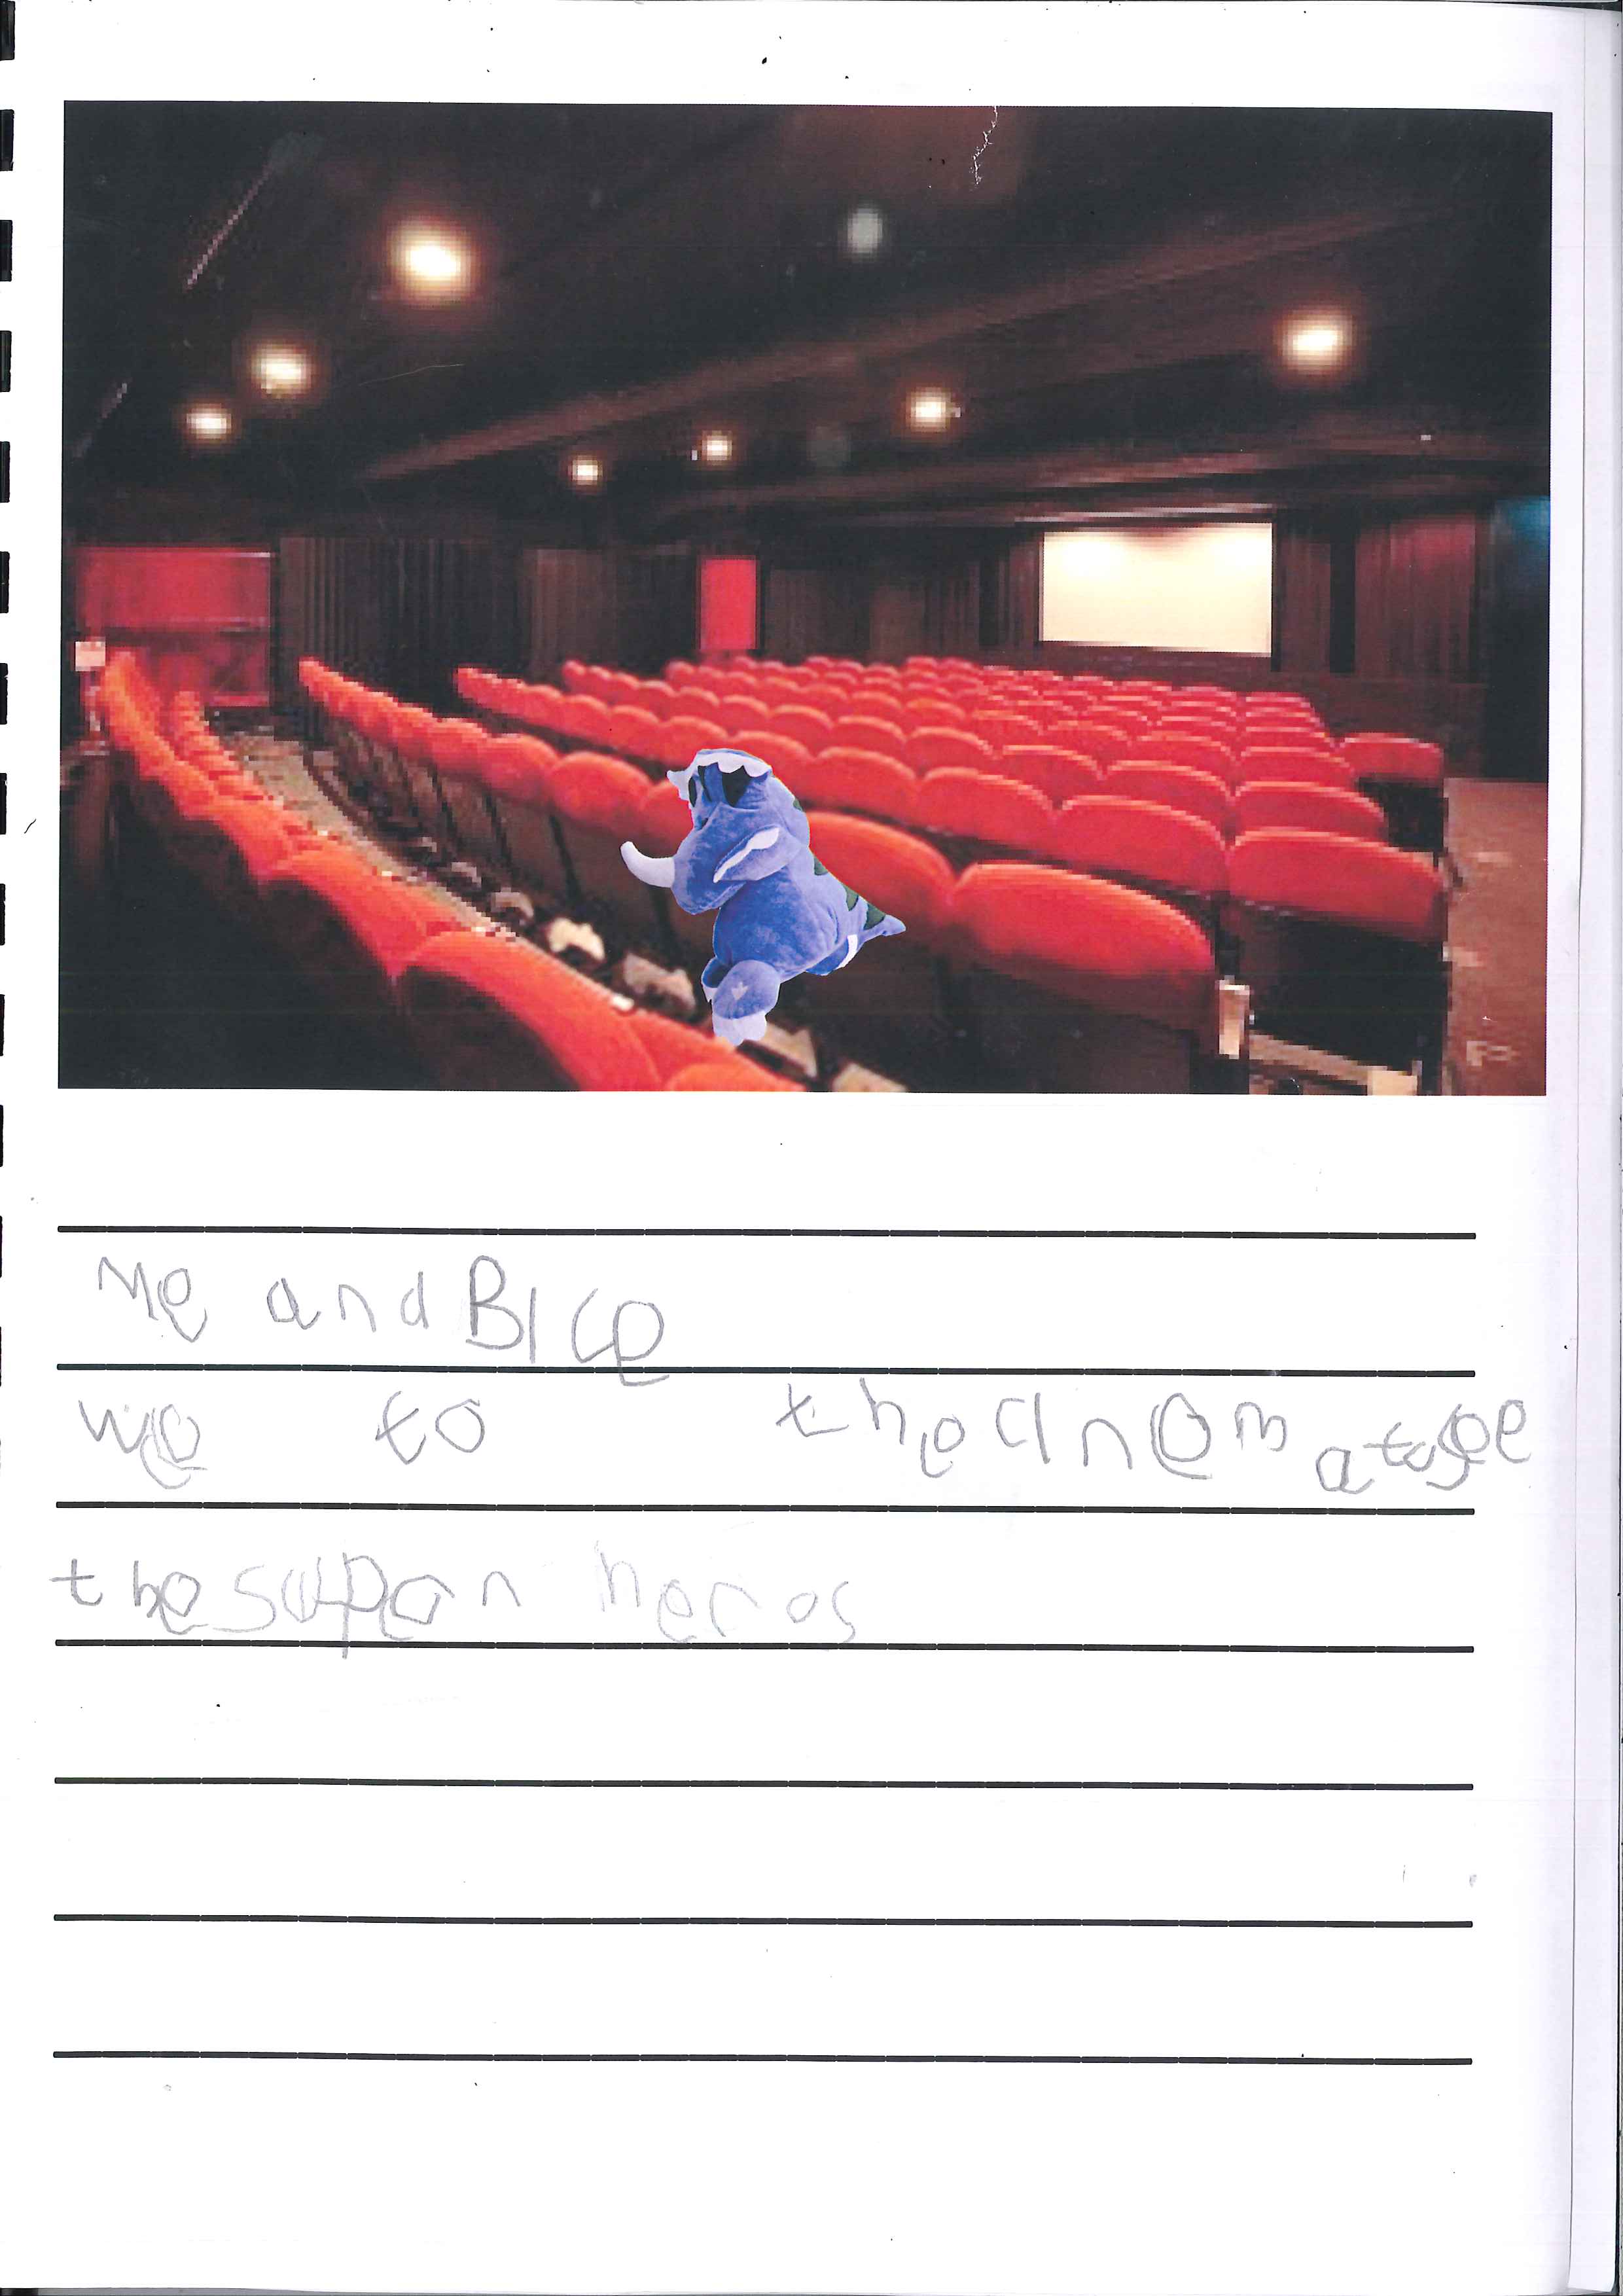 Me and Blce
we to the cinema to see
the super heros